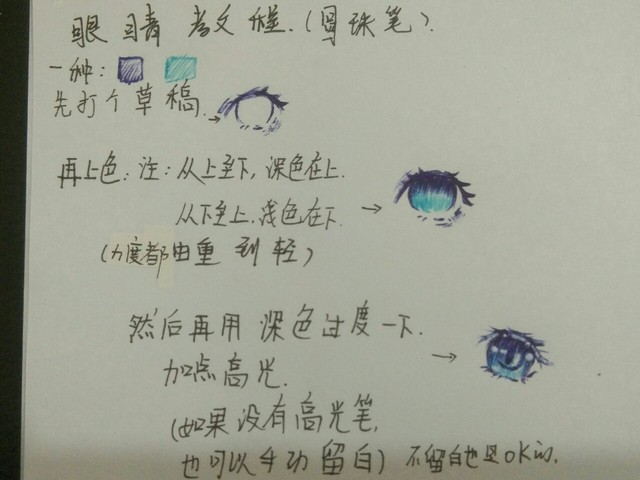 眼睛教程.(圆珠笔).
一种:
先打个草稿.→
再上色:注:从上至下,深色在上.
从下至上.浅色在下. →
(力度都由重到轻)
然后再用深色过度一下. →
加点高光.
(如果没有高光笔,
也可以手动留白)不留白也是OK的.